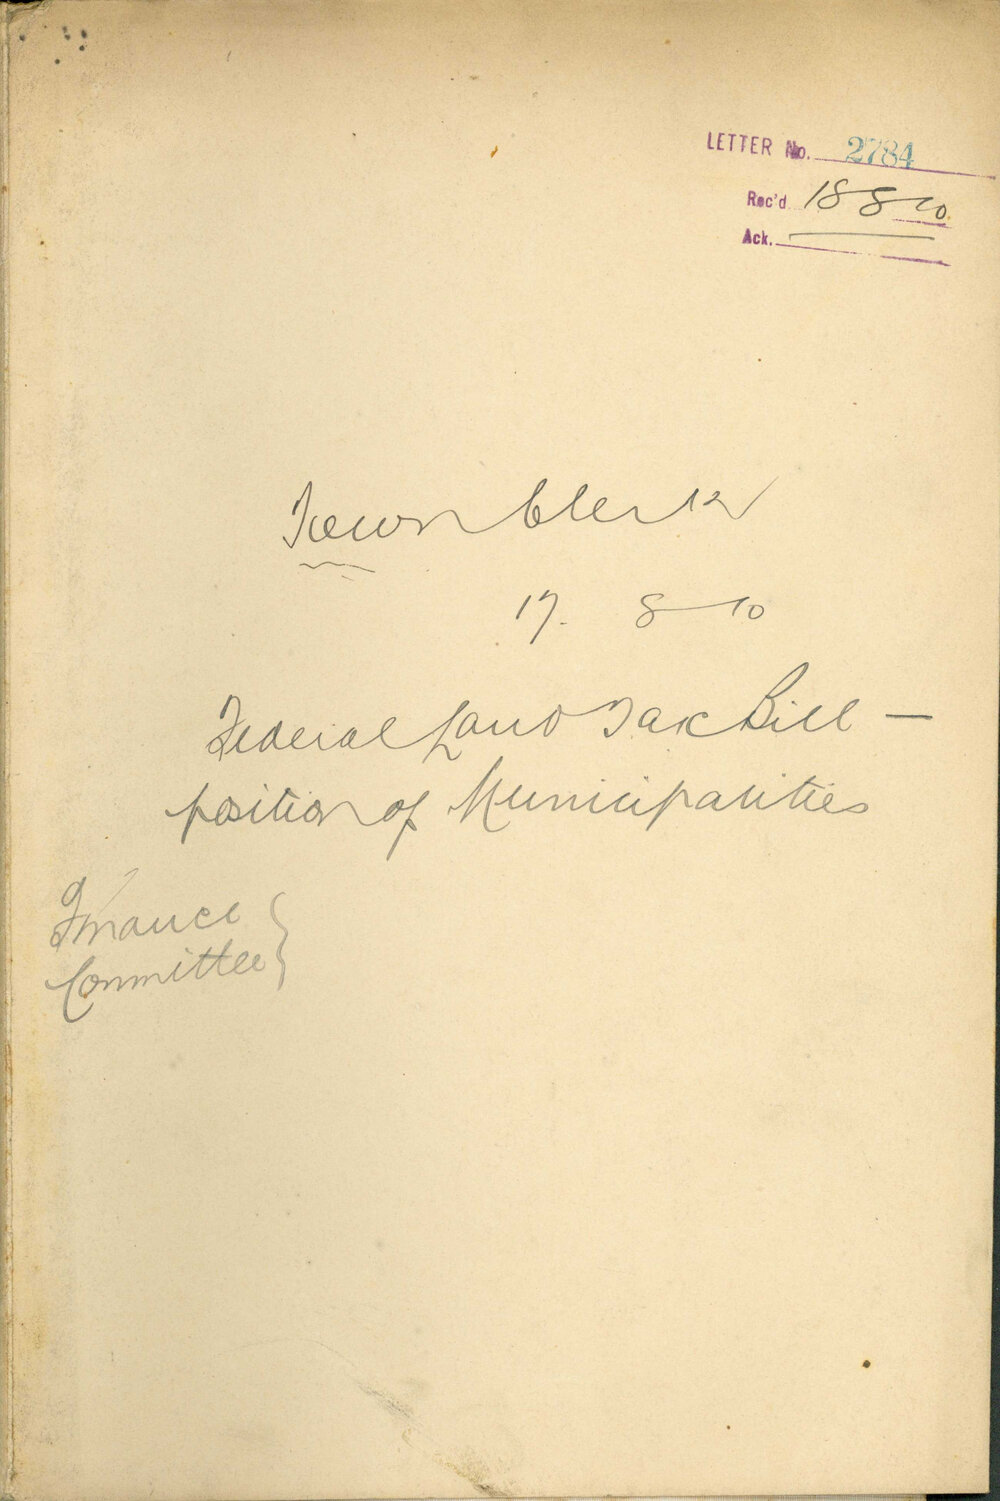 LETTER No. 2784
Rec'd 18 8 10.
Ack.
Town Clerk
17. 8 10
Federal Land Tax Bill —
position of Municipalities
Finance
Committee